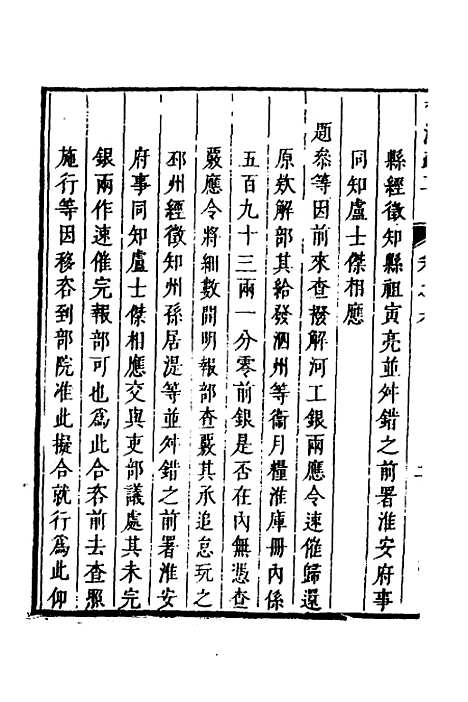 縣經徵知縣祖寅亮並舛錯之前署淮安府事
同知盧士傑相應
題參等因前來查撥解河工銀兩應令速催歸還
原欸解部其給發泗州等衞月糧淮庫冊內係
五百九十三兩一分零前銀是否在內無憑查
覈應令將細數開明報部查覈其承追怠玩之
邳州經徵知州孫居湜等並舛錯之前署淮安
府事同知盧士傑相應交與吏部議處其未完
銀兩作速催完報部可也爲此合咨前去查照
施行等因移咨到部院准此擬合就行爲此仰